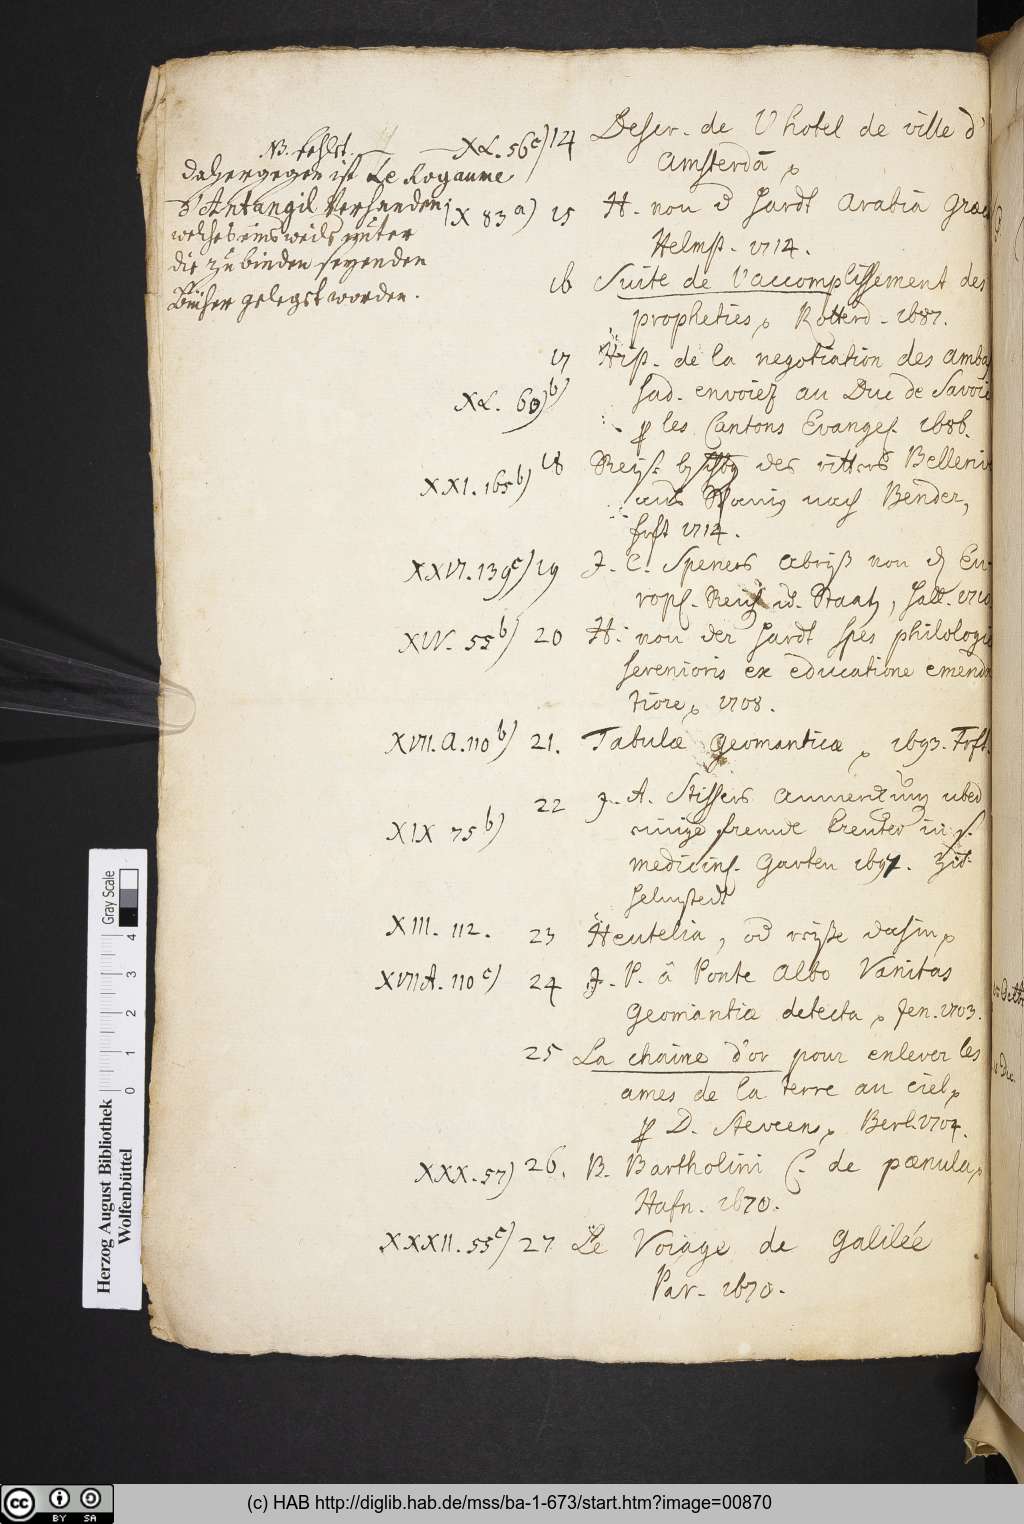 NB. fehlt.
dahergegen ist Le Royaume
d'Antangil verhanden,
welches einsweils unter
die zu binden seyenden
Bücher gelegt worden.
XL. 56 c) 14 Descr. de l'hotel de ville d'
Amsterdā
IX 83 a) 15 H. von d Hardt Arabia Græc
Helmst. 1714.
16 Suite de l'accomplissement des
propheties, Rotterd. 1687.
XL. 60 b) 17 Hist. de la negotiation des Ambas
sad. envoiez au Duc de Savoie
p les Cantons Evangel. 1686.
XXI. 165 b) 18 des ritters Bellerive
aus nach Bender,
1714.
XXVI. 139 c) 19 J. C. Speners Abriß von d Eu-
rop. Reich u. Staats, Hall. 1710
XIV. 55 b) 20 H. von der Hardt spes philologiæ
serenioris ex educatione emenda
tiore, 1708.
XVII. A. 110 b) 21. Tabulæ Geomanticæ, 1693.
XIX 75 b) 22 J. A. Stissers über
einige fremde Kreuter in s.
medicins. Garten 1697.
Helmstedt
XIII. 112. 23 Heutelia, od reiße dahin,
XVII A. 110 c) 24 J. P. â Ponte Albo Vanitas
Geomantiæ detecta, Jen. 1703.
25 La chaine d'or pour enlever les
ames de la terre au ciel,
p D. Steveens, Berl. 1704.
XXX. 57) 26. B. Bartholini C. de pænula,
Hafn. 1670.
XXXII. 55 c) 27 Le Voiage de Galilée
Par. 1670.
Gray Scale
0 1 2 3 4
Herzog August Bibliothek
Wolfenbüttel
cc BY SA
(c) HAB http://diglib.hab.de/mss/ba-1-673/start.htm?image=00870